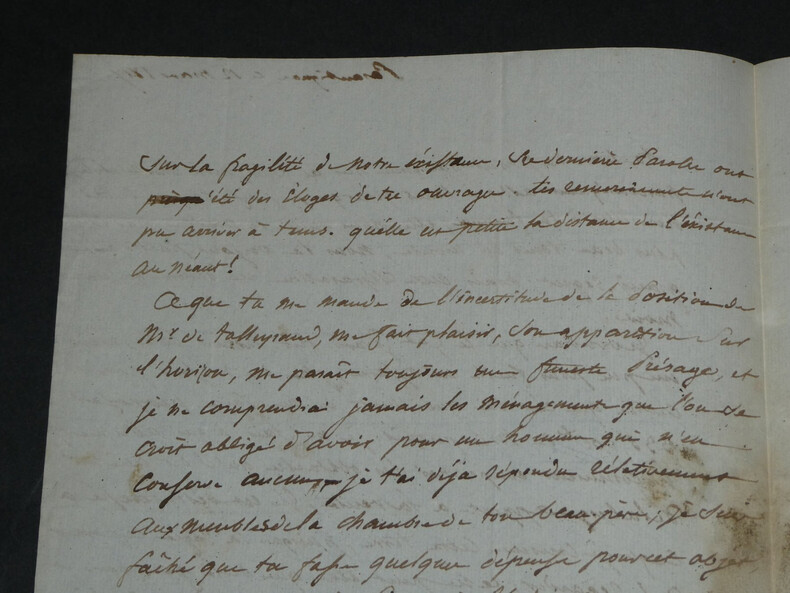 Sur la fragilité de notre éxistance, Se derniere Parolle ont
été des Éloges de tes ouvrage. tes remerciments n'ont
pu arriver à tems. quélle est petite la distance de l'éxistance
au néant!
Ce que tu me mande de l'incertitude de la Position de
Mr. de talleyrand, me fait plaisir, Son apparition Sur
l'horizon, me parait toujours un funeste Présage, et
je ne comprendrai jamais les ménagements que l'on se
croit obligé d'avoir pour un homme qui n'en
conserve aucun, je t'ai déja répondu rélativement
aux meubles de la chambre de ton beau-père, je suis
fâché que tu fasse quelque dépense pour cet objet,